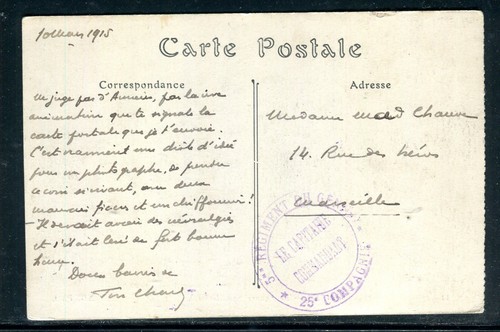 10 Mars 1915
Carte Postale
Correspondance
Adresse
juge pas d'Amiens, par la
animation que te signale la
carte postale que je t'envoie.
C'est vraiment une drôle d'idée
pour un photographe, de prendre
ce coin si vivant, avec deux
mauvais fiacres et un chiffonnier !
Il devait avoir des névralgies
et s'était levé de fort bonne
heure.
Doux baisers de
Ton Charles
Madame Chauve
14. Rue des héros
Marseille
5me RÉGIMENT DU GÉNIE
LE CAPITAINE
COMMANDANT
★ 25e COMPAGNIE ★